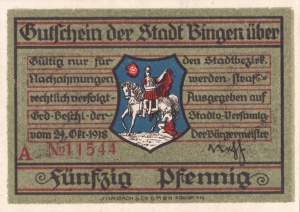 Gutschein der Stadt Bingen über
Gültig nur für den Stadtbezirk.
Nachahmungen werden straf-
rechtlich verfolgt. Ausgegeben auf
Grd. Beschl. der Stadtv. Versamlg.
vom 24. Okt. 1918 Der Bürgermeister
A No 11544
Fünfzig Pfennig